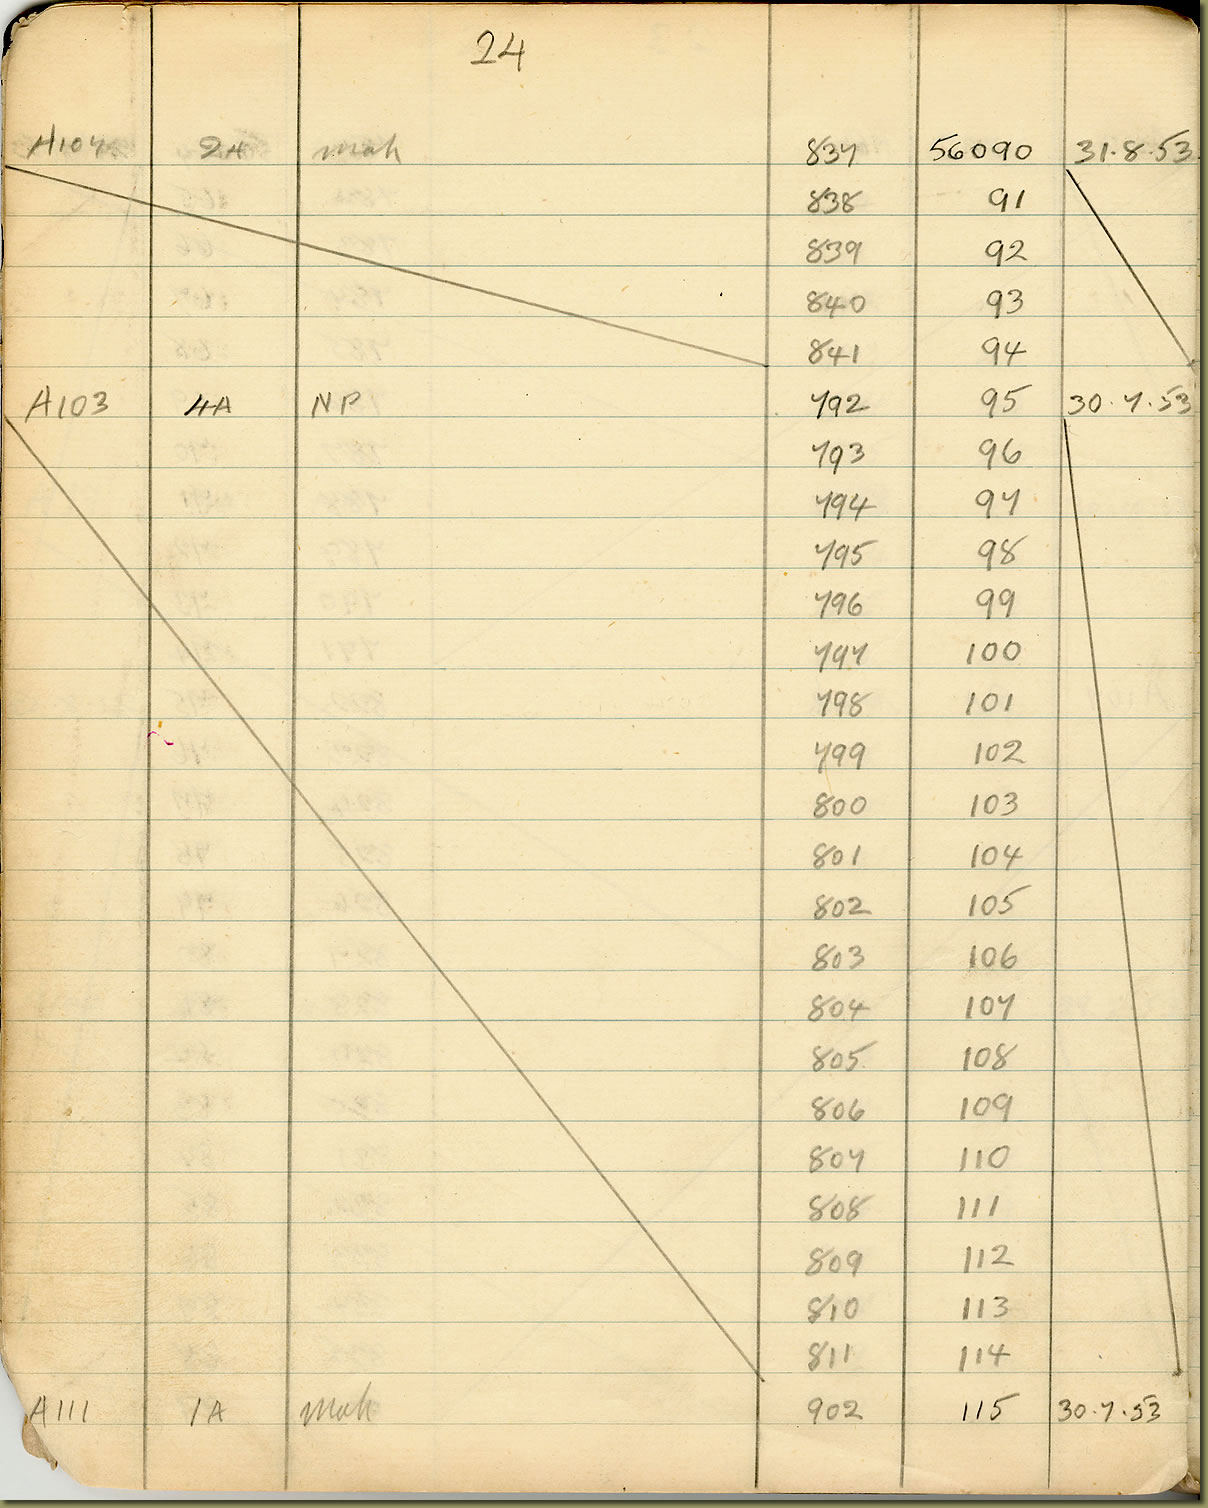 24
A107 2A mah 837 56090 31.8.53
838 91
839 92
840 93
841 94
A103 4A NP 792 95 30.7.53
793 96
794 97
795 98
796 99
797 100
798 101
799 102
800 103
801 104
802 105
803 106
804 107
805 108
806 109
807 110
808 111
809 112
810 113
811 114
A111 1A mah 902 115 30.7.53